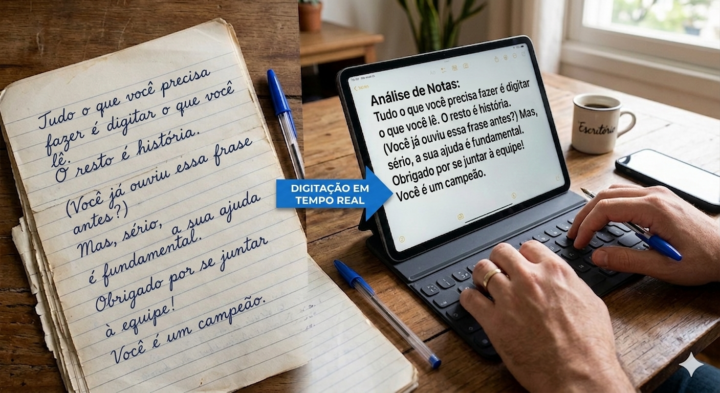 Tudo o que você precisa
fazer é digitar o que você
lê.
O resto é história.
(Você já ouviu essa frase
antes?)
Mas, sério, a sua ajuda
é fundamental.
Obrigado por se juntar
à equipe!
Você é um campeão.
DIGITAÇÃO EM
TEMPO REAL
Análise de Notas:
Tudo o que você precisa fazer é digitar
o que você lê. O resto é história.
(Você já ouviu essa frase antes?) Mas,
sério, a sua ajuda é fundamental.
Obrigado por se juntar à equipe!
Você é um campeão.
Escritório